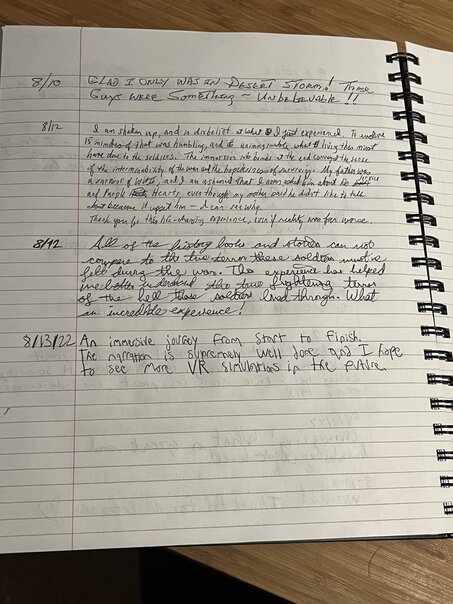 8/10 GLAD I ONLY WAS IN DESERT STORM! THOSE
GUYS WERE SOMETHING ~ UNBELIEVABLE !!
8/12 I am shaken up, and in disbelief at what I just experienced. To endure
15 minutes of that was humbling, and it's unimaginable what living that must
have done to the soldiers. The immersion into bunker at the end conveyed the sense
of the interminability of the war and the hopelessness of sovereignty. My father was
a survivor of WWII, and I am ashamed that I never asked him about his service
and Purple Hearts, even though my mother said he didn't like to talk
about because it upset him – I can see why.
Thank you for this life-changing experience, even if reality was far worse.
8/12 All of the history books and stories can not
compare to the true terror these soldiers must've
felt during the war. This experience has helped
me better understand the true frightening terror
of the hell these soldiers lived through. What
an incredible experience!
8/13/22 An immersive journey from start to finish.
The narration is supremely well done and I hope
to see more VR simulations in the future.